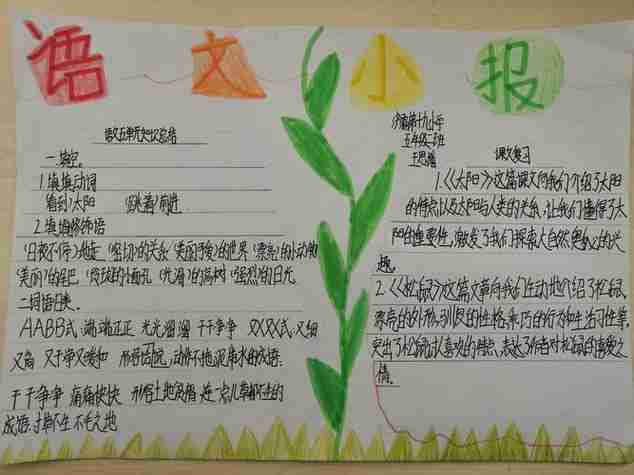 语文小报
语文五单元知识总结
一.填空。
1.填填动词
看到太阳 (跳着)前进
2.填填修饰语
(日夜不停)地走 (密切)的关系 (美丽可爱)的世界 (漂亮)的小动物
(美丽)的尾巴 (玲珑)的小面孔 (光滑)的高树 (强烈)的日光
二.词语归类。
AABB式:端端正正 光光溜溜 干干净净 又X又X式:又细
又高 又干净又暖和 形容
干干净净 痛痛快快 形容土地贫瘠,连一点儿草都不生的
成语:寸草不生 不毛之地
第十九小学
五年级二班
课文复习
1.《太阳》这篇课文向我们介绍了太阳
的特点以及太阳与人类的关系,让我们懂得了太
阳的重要性,激发了我们探索大自然奥秘的兴
趣。
2.《松鼠》这篇文章向我们生动地介绍了松鼠
漂亮的外形,驯良的性格,乖巧的行为和生活习性等,
突出了松鼠讨人喜欢的特点,表达了作者对松鼠的喜爱之
情。